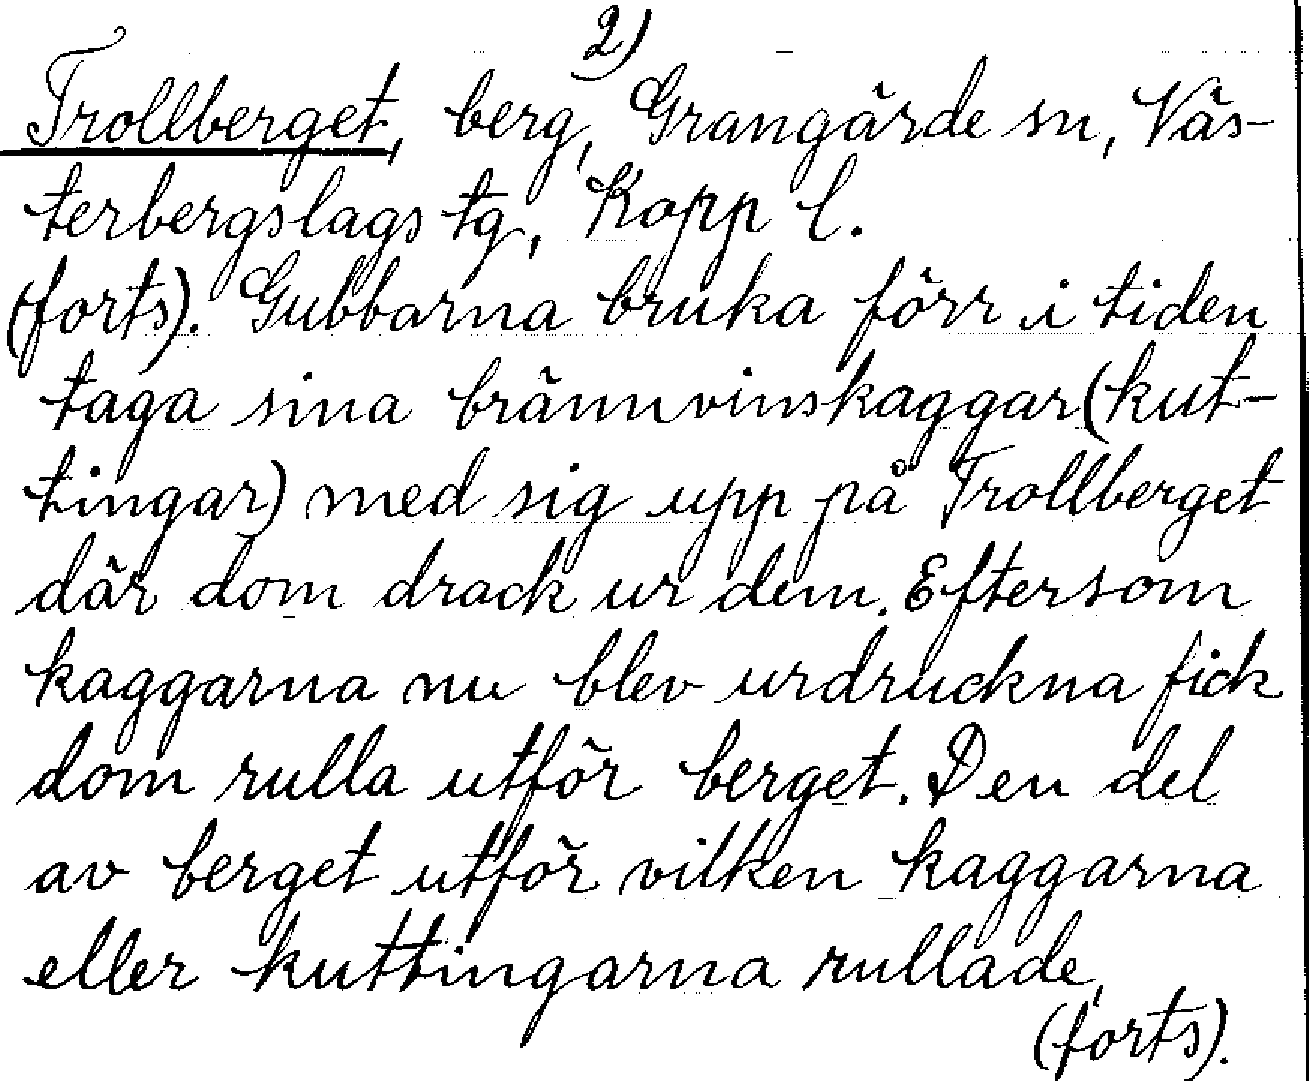 2)
Trollberget, berg, Grangärde sn, Väs-
terbergslags tg, Kopp l.
(forts). Gubbarna bruka förr i tiden
taga sina brännvinskaggar (kut-
tingar) med sig upp på Trollberget
där dom drack ur dem. Eftersom
kaggarna nu blev urdruckna fick
dom rulla utför berget. Den del
av berget utför vilken kaggarna
eller kuttingarna rullade,
(forts).